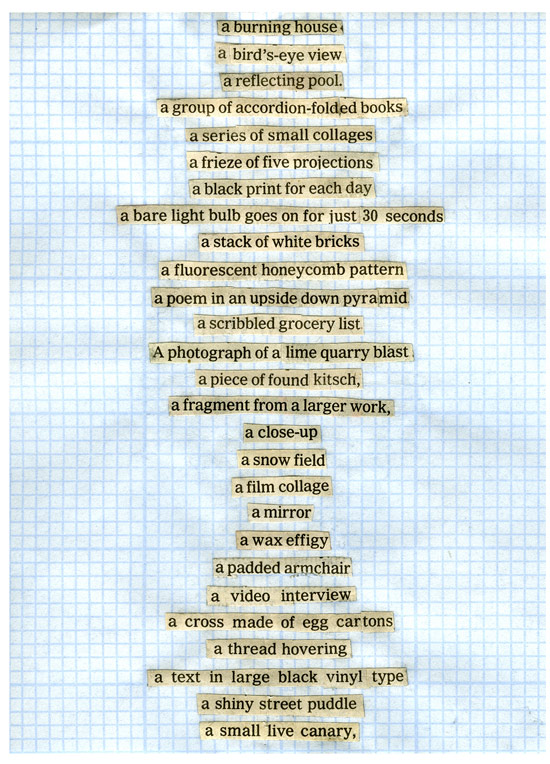 a burning house
a bird's-eye view
a reflecting pool.
a group of accordion-folded books
a series of small collages
a frieze of five projections
a black print for each day
a bare light bulb goes on for just 30 seconds
a stack of white bricks
a fluorescent honeycomb pattern
a poem in an upside down pyramid
a scribbled grocery list
A photograph of a lime quarry blast
a piece of found kitsch,
a fragment from a larger work,
a close-up
a snow field
a film collage
a mirror
a wax effigy
a padded armchair
a video interview
a cross made of egg cartons
a thread hovering
a text in large black vinyl type
a shiny street puddle
a small live canary,